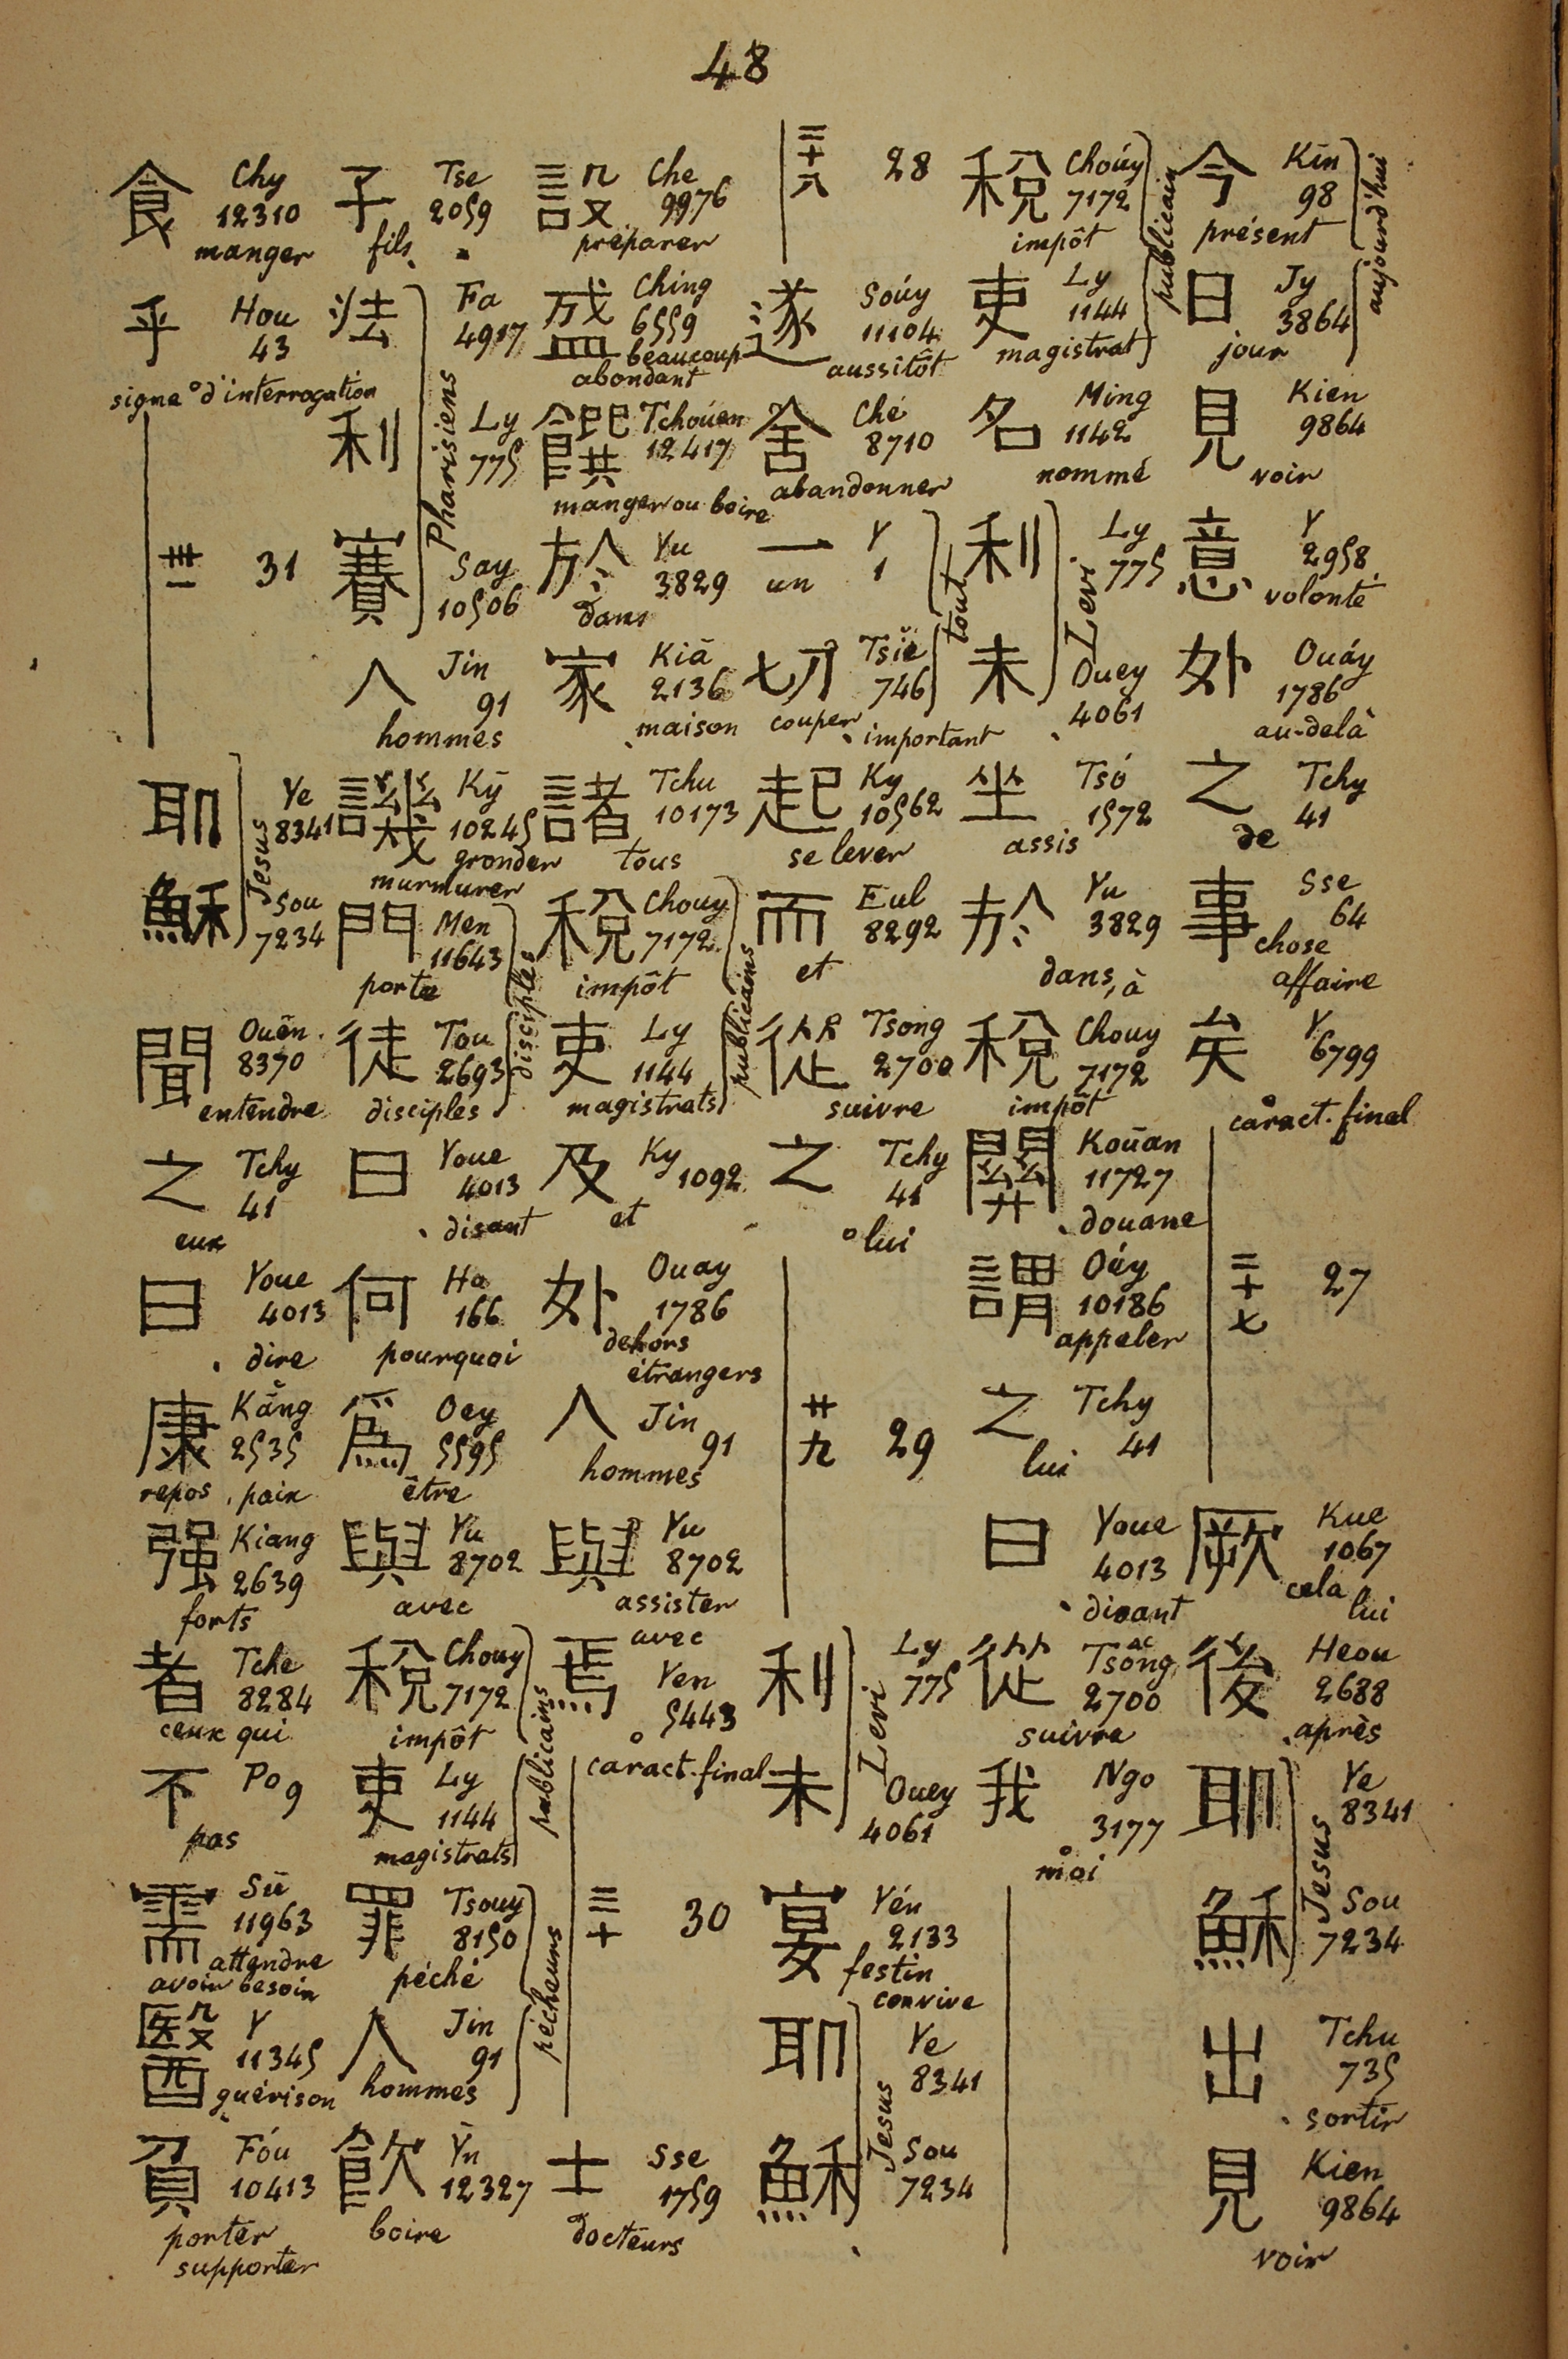 48
今 Kīn 98 présent
日 Jy 3864 jour
aujourd'hui
見 Kien 9864 voir
意 Y 2958 volonté
外 Ouáy 1786 au-delà
之 Tchy 41 de
事 Sse 64 chose affaire
矣 Y 6799 caract. final
二十七 27
厥 Kue 1067 cela lui
後 Heou 2688 après
耶 Ye 8341
穌 Sou 7234
Jesus
出 Tchu 735 sortir
見 Kien 9864 voir
稅 Choúy 7172 impôt
吏 Ly 1144 magistrat
publicain
名 Ming 1142 nommé
利 Ly 775
未 Ouey 4061
Levi
坐 Tsó 1572 assis
於 Yu 3829 dans, à
稅 Chouy 7172 impôt
關 Koūan 11727 douane
謂 Oéy 10186 appeler
之 Tchy 41 lui
曰 Youe 4013 disant
從 Tsong 2700 suivre
我 Ngo 3177 moi
二十八 28
遂 Soúy 11104 aussitôt
舍 Ché 8710 abandonner
一 Y 1 un
切 Tsiĕ 746 couper important
tout
起 Ky 10562 se lever
而 Eul 8292 et
從 Tsong 2700 suivre
之 Tchy 41 lui
廿九 29
利 Ly 775
未 Ouey 4061
Levi
宴 Yén 2133 festin convive
耶 Ye 8341
穌 Sou 7234
Jesus
設 Che 9976 préparer
盛 Ching 6559 beaucoup abondant
饌 Tchoúen 12417 manger ou boire
於 Yu 3829 dans
家 Kiā 2136 maison
諸 Tchu 10173 tous
稅 Chouy 7172 impôt
吏 Ly 1144 magistrats
publicains
及 Ky 1092 et
外 Ouay 1786 dehors étrangers
人 Jin 91 hommes
與 Yu 8702 assister avec
焉 Yen 5443 caract. final
三十 30
士 Sse 1759 docteurs
子 Tse 2059 fils
法 Fa 4917
利 Ly 775
賽 Say 10506
Pharisiens
人 Jin 91 hommes
譏 Kȳ 10245 gronder murmurer
門 Men 11643 porte
徒 Tou 2693 disciples
disciples
曰 Youe 4013 disant
何 Ho 166 pourquoi
爲 Oey 5595 être
與 Yu 8702 avec
稅 Chouy 7172 impôt
吏 Ly 1144 magistrats
publicains
罪 Tsouy 8150 péché
人 Jin 91 hommes
pécheurs
飮 Ȳn 12327 boire
食 Chy 12310 manger
乎 Hou 43 signe d'interrogation
卅一 31
耶 Ye 8341
穌 Sou 7234
Jesus
聞 Ouên 8370 entendre
之 Tchy 41 eux
曰 Youe 4013 dire
康 Kāng 2535 repos, paix
强 Kiang 2639 forts
者 Tche 8284 ceux qui
不 Po 9 pas
需 Sū 11963 attendre avoir besoin
醫 Y 11345 guérison
負 Fóu 10413 porter supporter